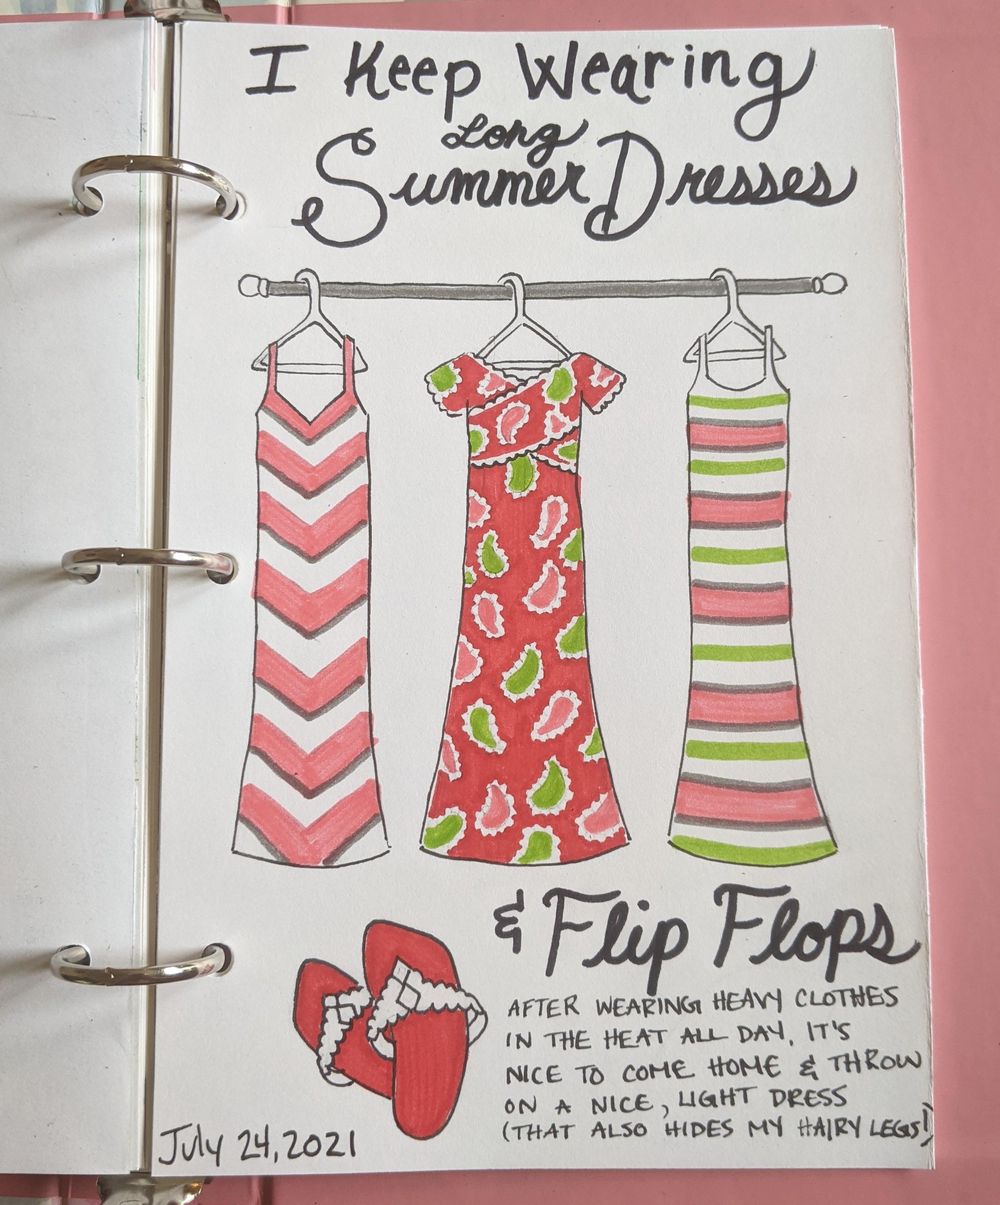 I Keep Wearing
Long
Summer Dresses
& Flip Flops
AFTER WEARING HEAVY CLOTHES
IN THE HEAT ALL DAY, IT'S
NICE TO COME HOME & THROW
ON A NICE, LIGHT DRESS
(THAT ALSO HIDES MY HAIRY LEGS!)
July 24, 2021